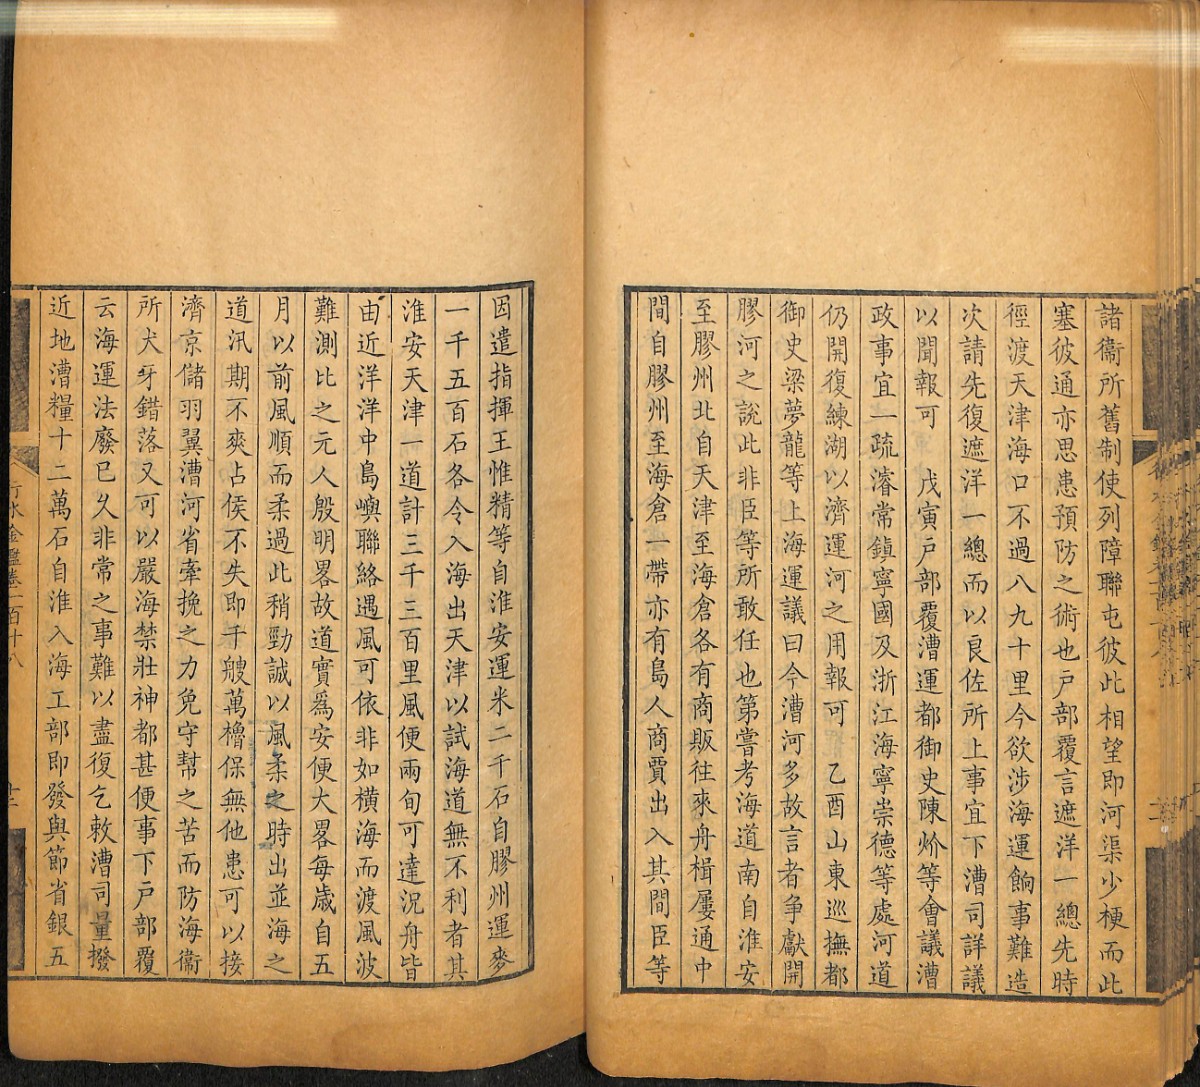 諸衞所舊制使列障聯屯彼此相望即河渠少梗而此
塞彼通亦思患預防之術也戸部覆言遮洋一總先時
徑渡天津海口不過八九十里今欲涉海運餉事難造
次請先復遮洋一總而以良佐所上事宜下漕司詳議
以聞報可　戊寅戸部覆漕運都御史陳炌等會議漕
政事宜一疏濬常鎮寧國及浙江海寧崇德等處河道
仍開復練湖以濟運河之用報可　乙酉山東巡撫都
御史梁夢龍等上海運議曰今漕河多故言者争獻開
膠河之說此非臣等所敢任也第嘗考海道南自淮安
至膠州北自天津至海倉各有商販往來舟楫屢通中
間自膠州至海倉一帶亦有島人商賈出入其間臣等
因遣指揮王惟精等自淮安運米二千石自膠州運麥
一千五百石各令入海出天津以試海道無不利者其
淮安天津一道計三千三百里風便兩旬可達況舟皆
由近洋洋中島嶼聯絡遇風可依非如横海而渡風波
難測比之元人殷明畧故道實爲安便大畧每歲自五
月以前風順而柔過此稍勁誠以風柔之時出並海之
道汛期不爽占侯不失即千艘萬櫓保無他患可以接
濟京儲羽翼漕河省牽挽之力免守幫之苦而防海衞
所犬牙錯落又可以嚴海禁壯神都甚便事下戸部覆
云海運法廢已久非常之事難以盡復乞敕漕司量撥
近地漕糧十二萬石自淮入海工部即發與節省銀五
行水金鑑卷一百十八　十二